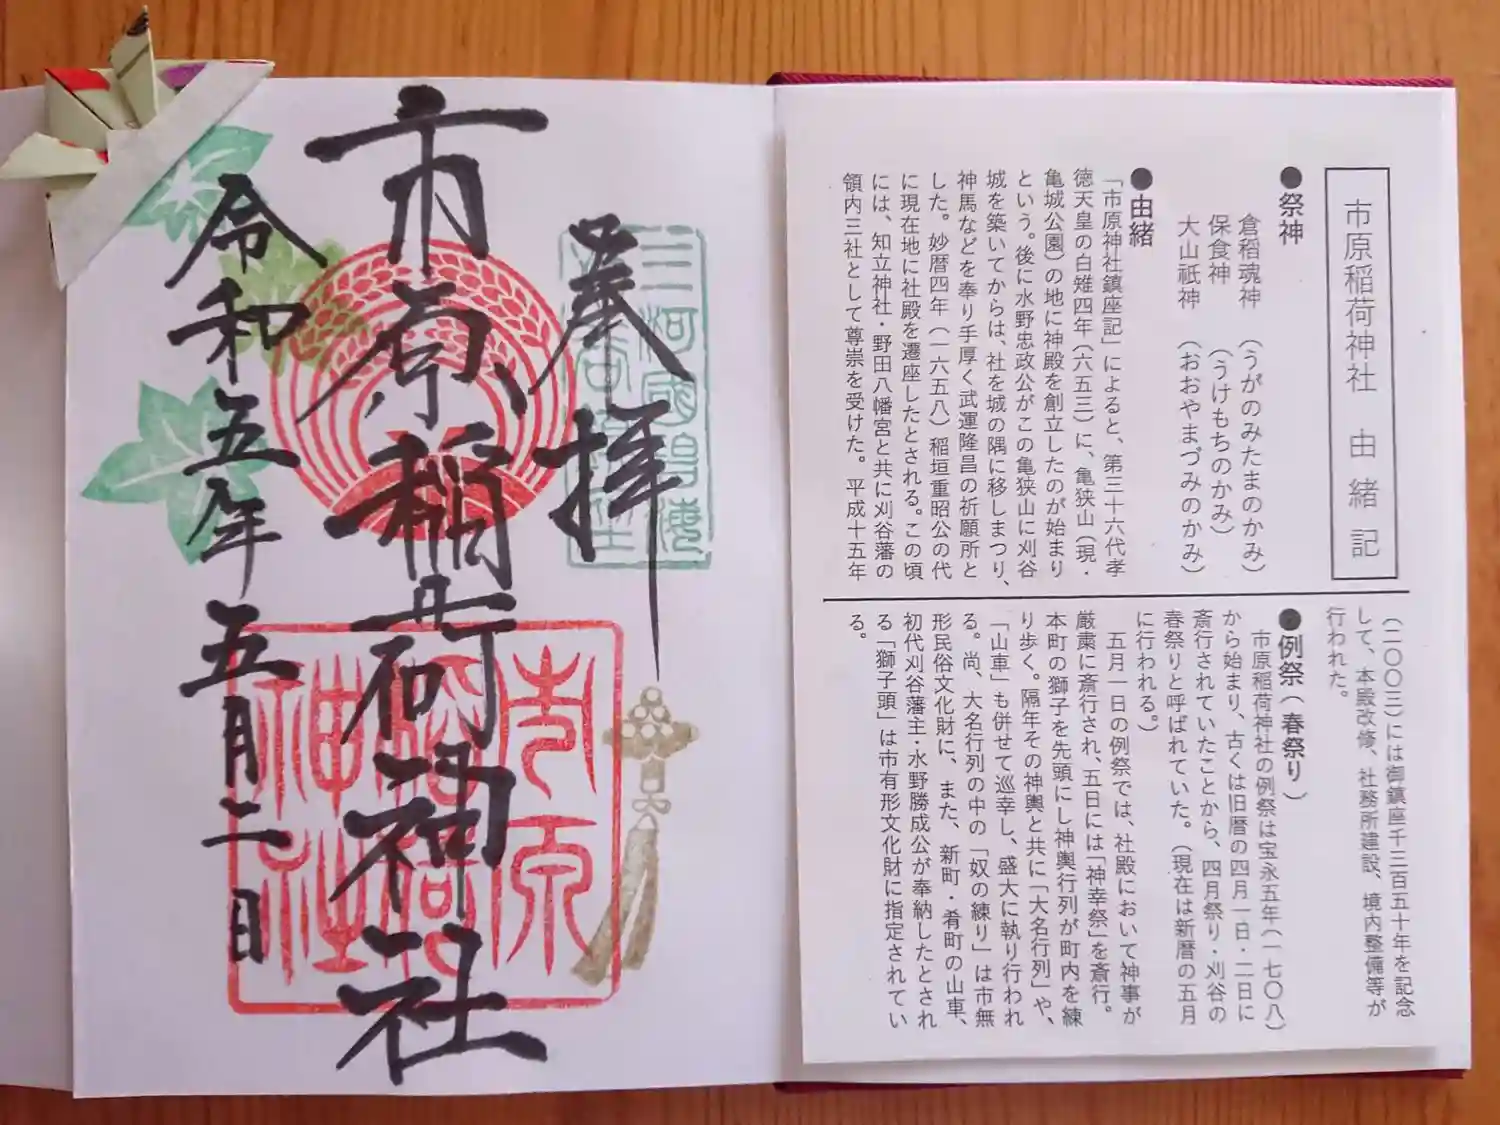 市原稲荷神社 由緒記
●祭神
倉稲魂神 (うがのみたまのかみ)
保食神 (うけもちのかみ)
大山祇神 (おおやまづみのかみ)
●由緒
「市原神社鎮座記」によると、第三十六代孝
徳天皇の白雉四年(六五三)に、亀狭山(現・
亀城公園)の地に神殿を創立したのが始まり
という。後に水野忠政公がこの亀狭山に刈谷
城を築いてからは、社を城の隅に移しまつり、
神馬などを奉り手厚く武運隆昌の祈願所と
した。妙暦四年(一六五八)稲垣重昭公の代
に現在地に社殿を遷座したとされる。この頃
には、知立神社・野田八幡宮と共に刈谷藩の
領内三社として尊崇を受けた。平成十五年
(二〇〇三)には御鎮座千三百五十年を記念
して、本殿改修、社務所建設、境内整備等が
行われた。
●例祭(春祭り)
市原稲荷神社の例祭は宝永五年(一七〇八)
から始まり、古くは旧暦の四月一日・二日に
斎行されていたことから、四月祭り・刈谷の
春祭りと呼ばれていた。(現在は新暦の五月
に行われる。)
五月一日の例祭では、社殿において神事が
厳粛に斎行され、五日には「神幸祭」を斎行。
本町の獅子を先頭にし神輿行列が町内を練
り歩く。隔年その神輿と共に「大名行列」や、
「山車」も併せて巡幸し、盛大に執り行われ
る。尚、大名行列の中の「奴の練り」は市無
形民俗文化財に、また、新町・肴町の山車、
初代刈谷藩主・水野勝成公が奉納したとされ
る「獅子頭」は市有形文化財に指定されてい
る。
奉拝
三河國碧海
市原稲荷神社
市原
稲荷
神社
令和五年五月二日